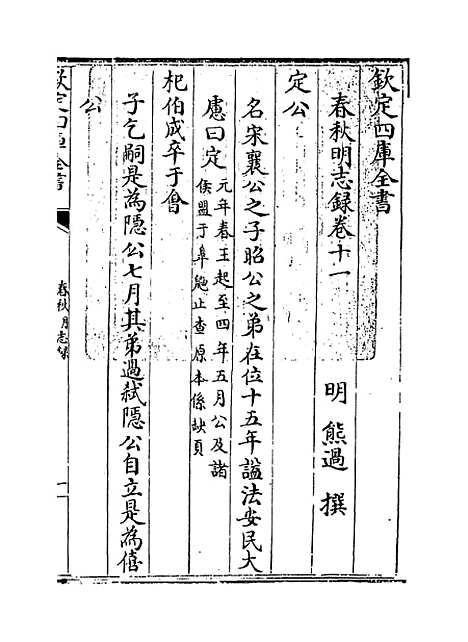 欽定四庫全書
春秋明志録卷十一
明 熊過 撰
定公
名宋襄公之子昭公之弟在位十五年諡法安民大
慮曰定元年春王起至四年五月公及諸
侯盟于皐鼬止查原本係缺頁
杞伯成卒于會
子乞嗣是為隱公七月其弟過弑隱公自立是為僖
公
欽定四庫全書
春秋明志録
一